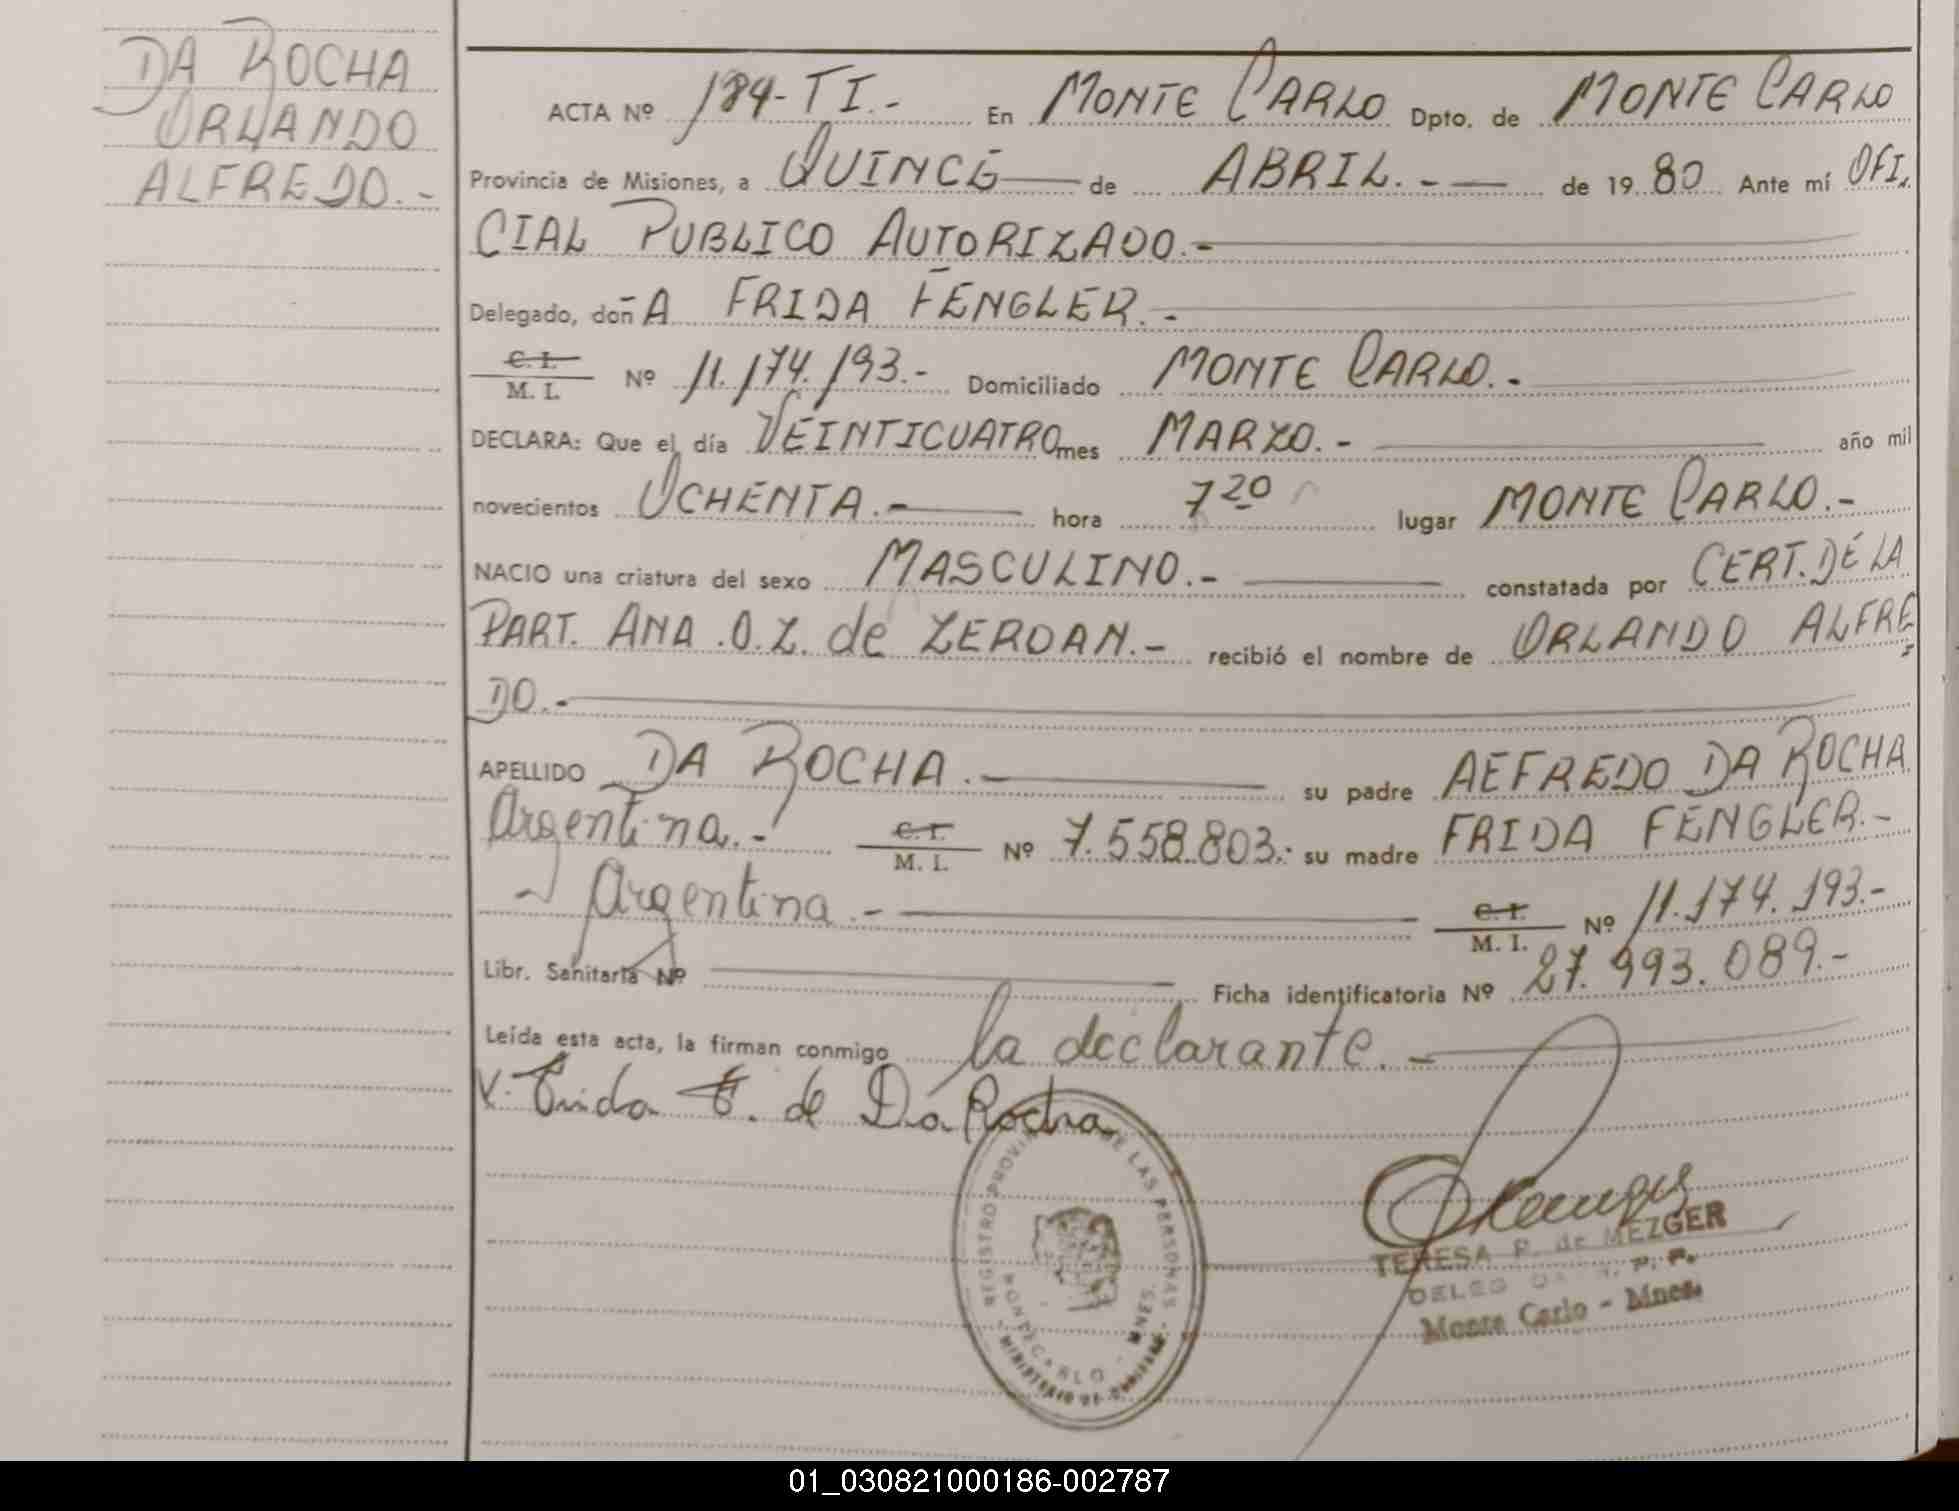 DA ROCHA
ORLANDO
ALFREDO.-
ACTA Nº 184-TI.- En MONTE CARLO Dpto. de MONTE CARLO
Provincia de Misiones, a QUINCE de ABRIL.- de 1980 Ante mí OFI.
CIAL PUBLICO AUTORIZADO.-
Delegado, doñA FRIDA FENGLER.-
C. I.
M. I. Nº 11.174.193.- Domiciliado MONTE CARLO.-
DECLARA: Que el día VEINTICUATRO mes MARZO.- año mil
novecientos OCHENTA.- hora 7 20 lugar MONTE CARLO.-
NACIO una criatura del sexo MASCULINO.- constatada por CERT. DE LA
PART. ANA .O.Z. de ZERDAN.- recibió el nombre de ORLANDO ALFRE
DO.-
APELLIDO DA ROCHA.- su padre ALFREDO DA ROCHA
Argentina.- C. I.
M. I. Nº 7.558.803.- su madre FRIDA FENGLER.-
Argentina.- C. I.
M. I. Nº 11.174.193.-
Libr. Sanitaria Nº Ficha identificatoria Nº 27.993.089.-
Leída esta acta, la firman conmigo la declarante.-
Frida F. de Da Rocha
REGISTRO PROVINCIAL DE LAS PERSONAS
MONTECARLO - MNES.
TERESA P. de MEZGER
Monte Carlo - Mnes.
01_030821000186-002787